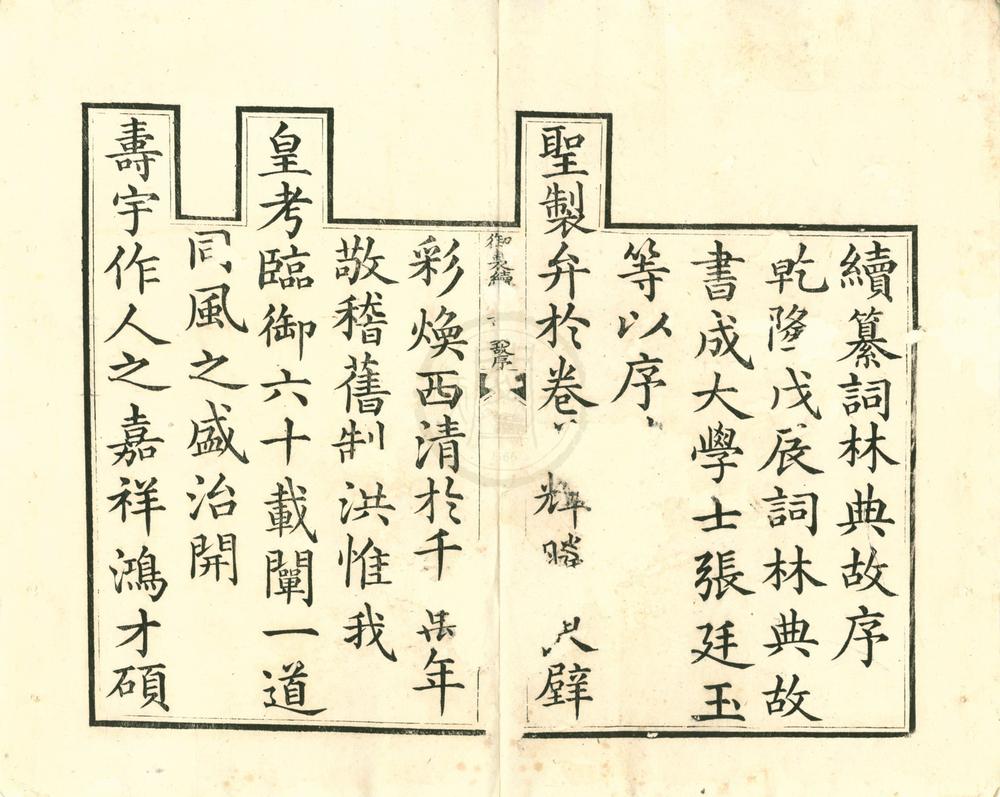 續纂詞林典故序
乾隆戊辰詞林典故
書成大學士張廷玉
等以序
聖製弁於卷輝騰尺璧
彩煥西清於千年
敬稽舊制洪惟我
皇考臨御六十載闡一道
同風之盛治開
壽宇作人之嘉祥鴻才碩